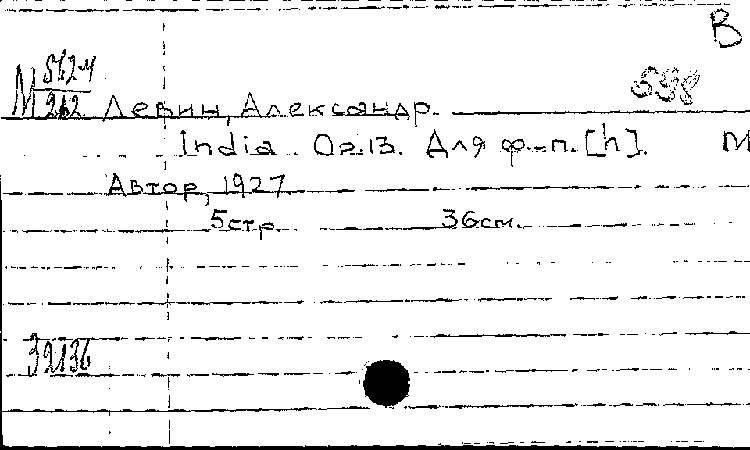 В
М 512-4
262 Левин, Александр.
India. Op.13. Для ф-п. [h]. М
Автор, 1927
5стр. 36см.
32136